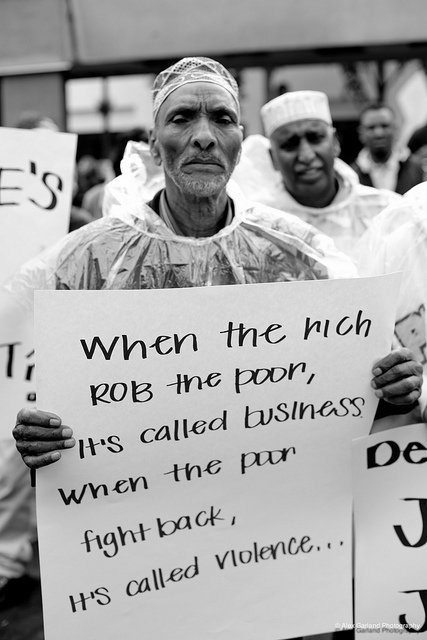 When the rich
ROB the poor,
it's called business
When the poor
fight back,
it's called violence...
E'S
De
J
J
© Alex Garland Photography